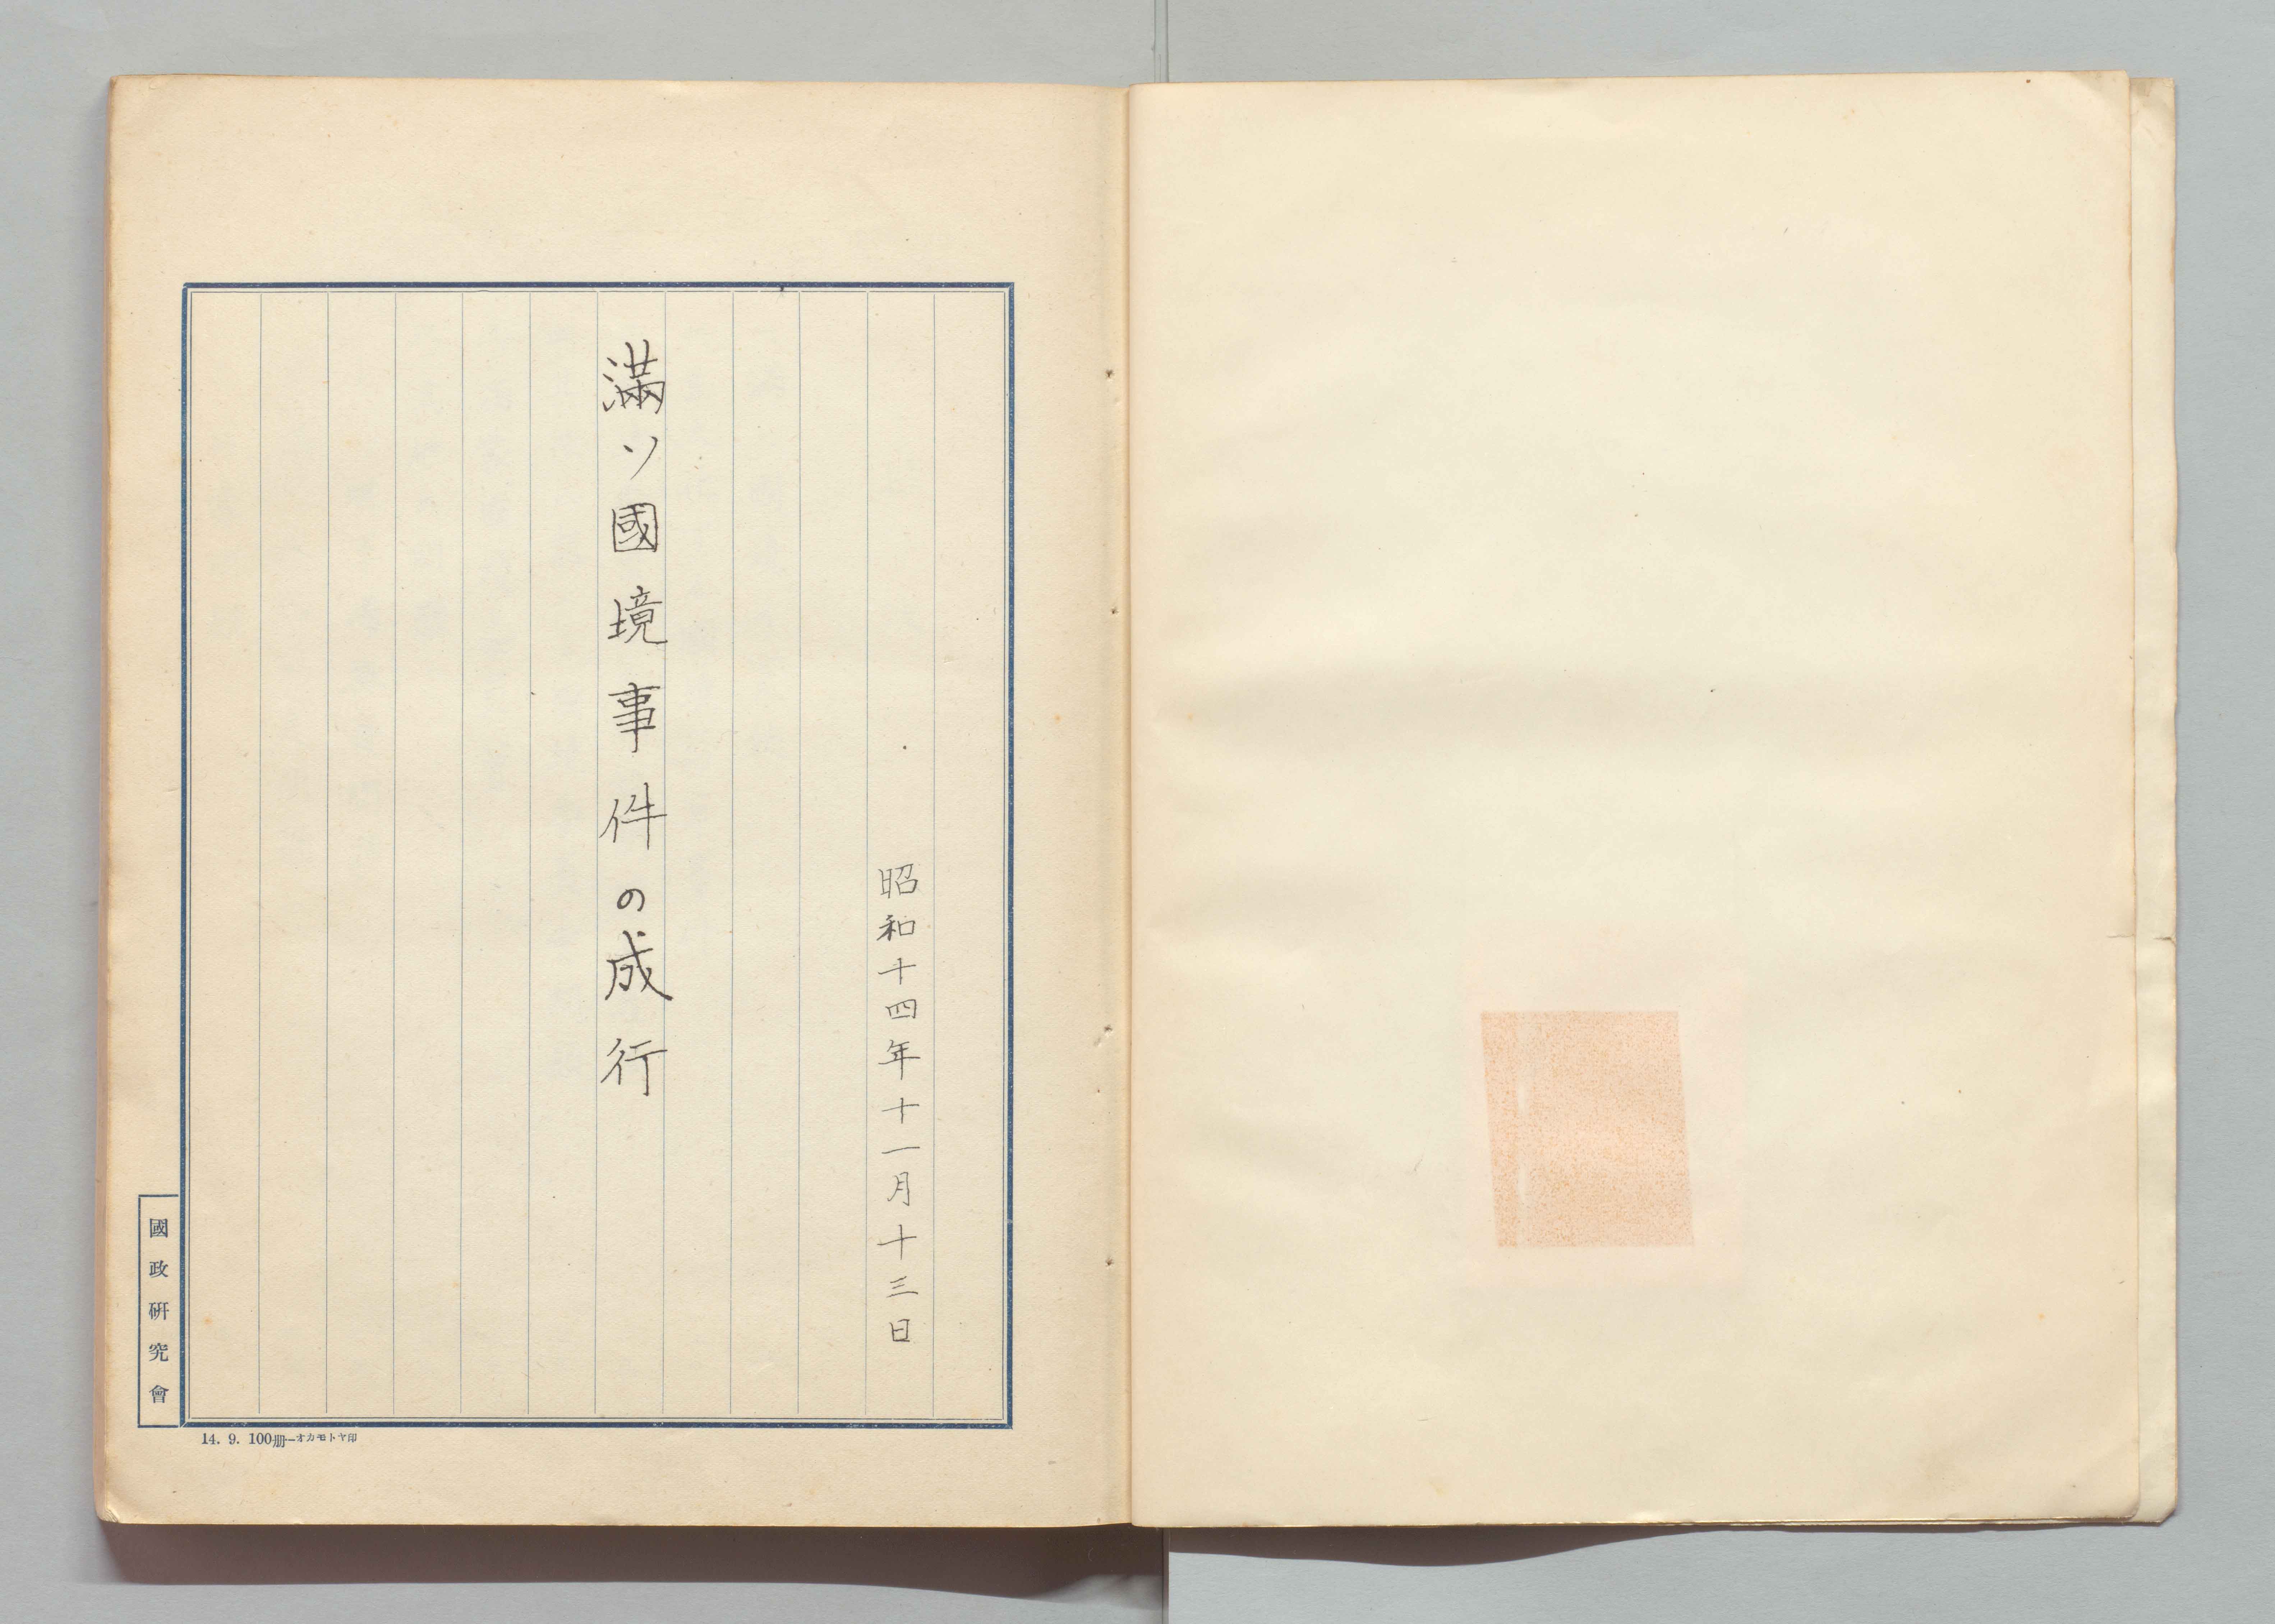 昭和十四年十一月十三日
満ソ國境事件の成行
國政硏究會
14. 9. 100册—オカモトヤ印